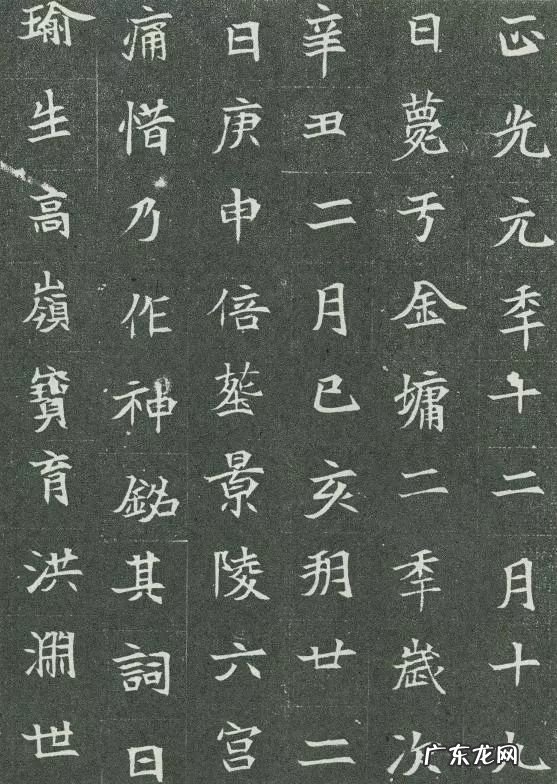 正光元秊十二月十九
日薨于金墉二秊歲次
辛丑二月己亥朔廿二
日庚申倍塟景陵六宫
痛惜乃作神銘其詞曰
瑜生高嶺寶育洪淵世
广东龙网